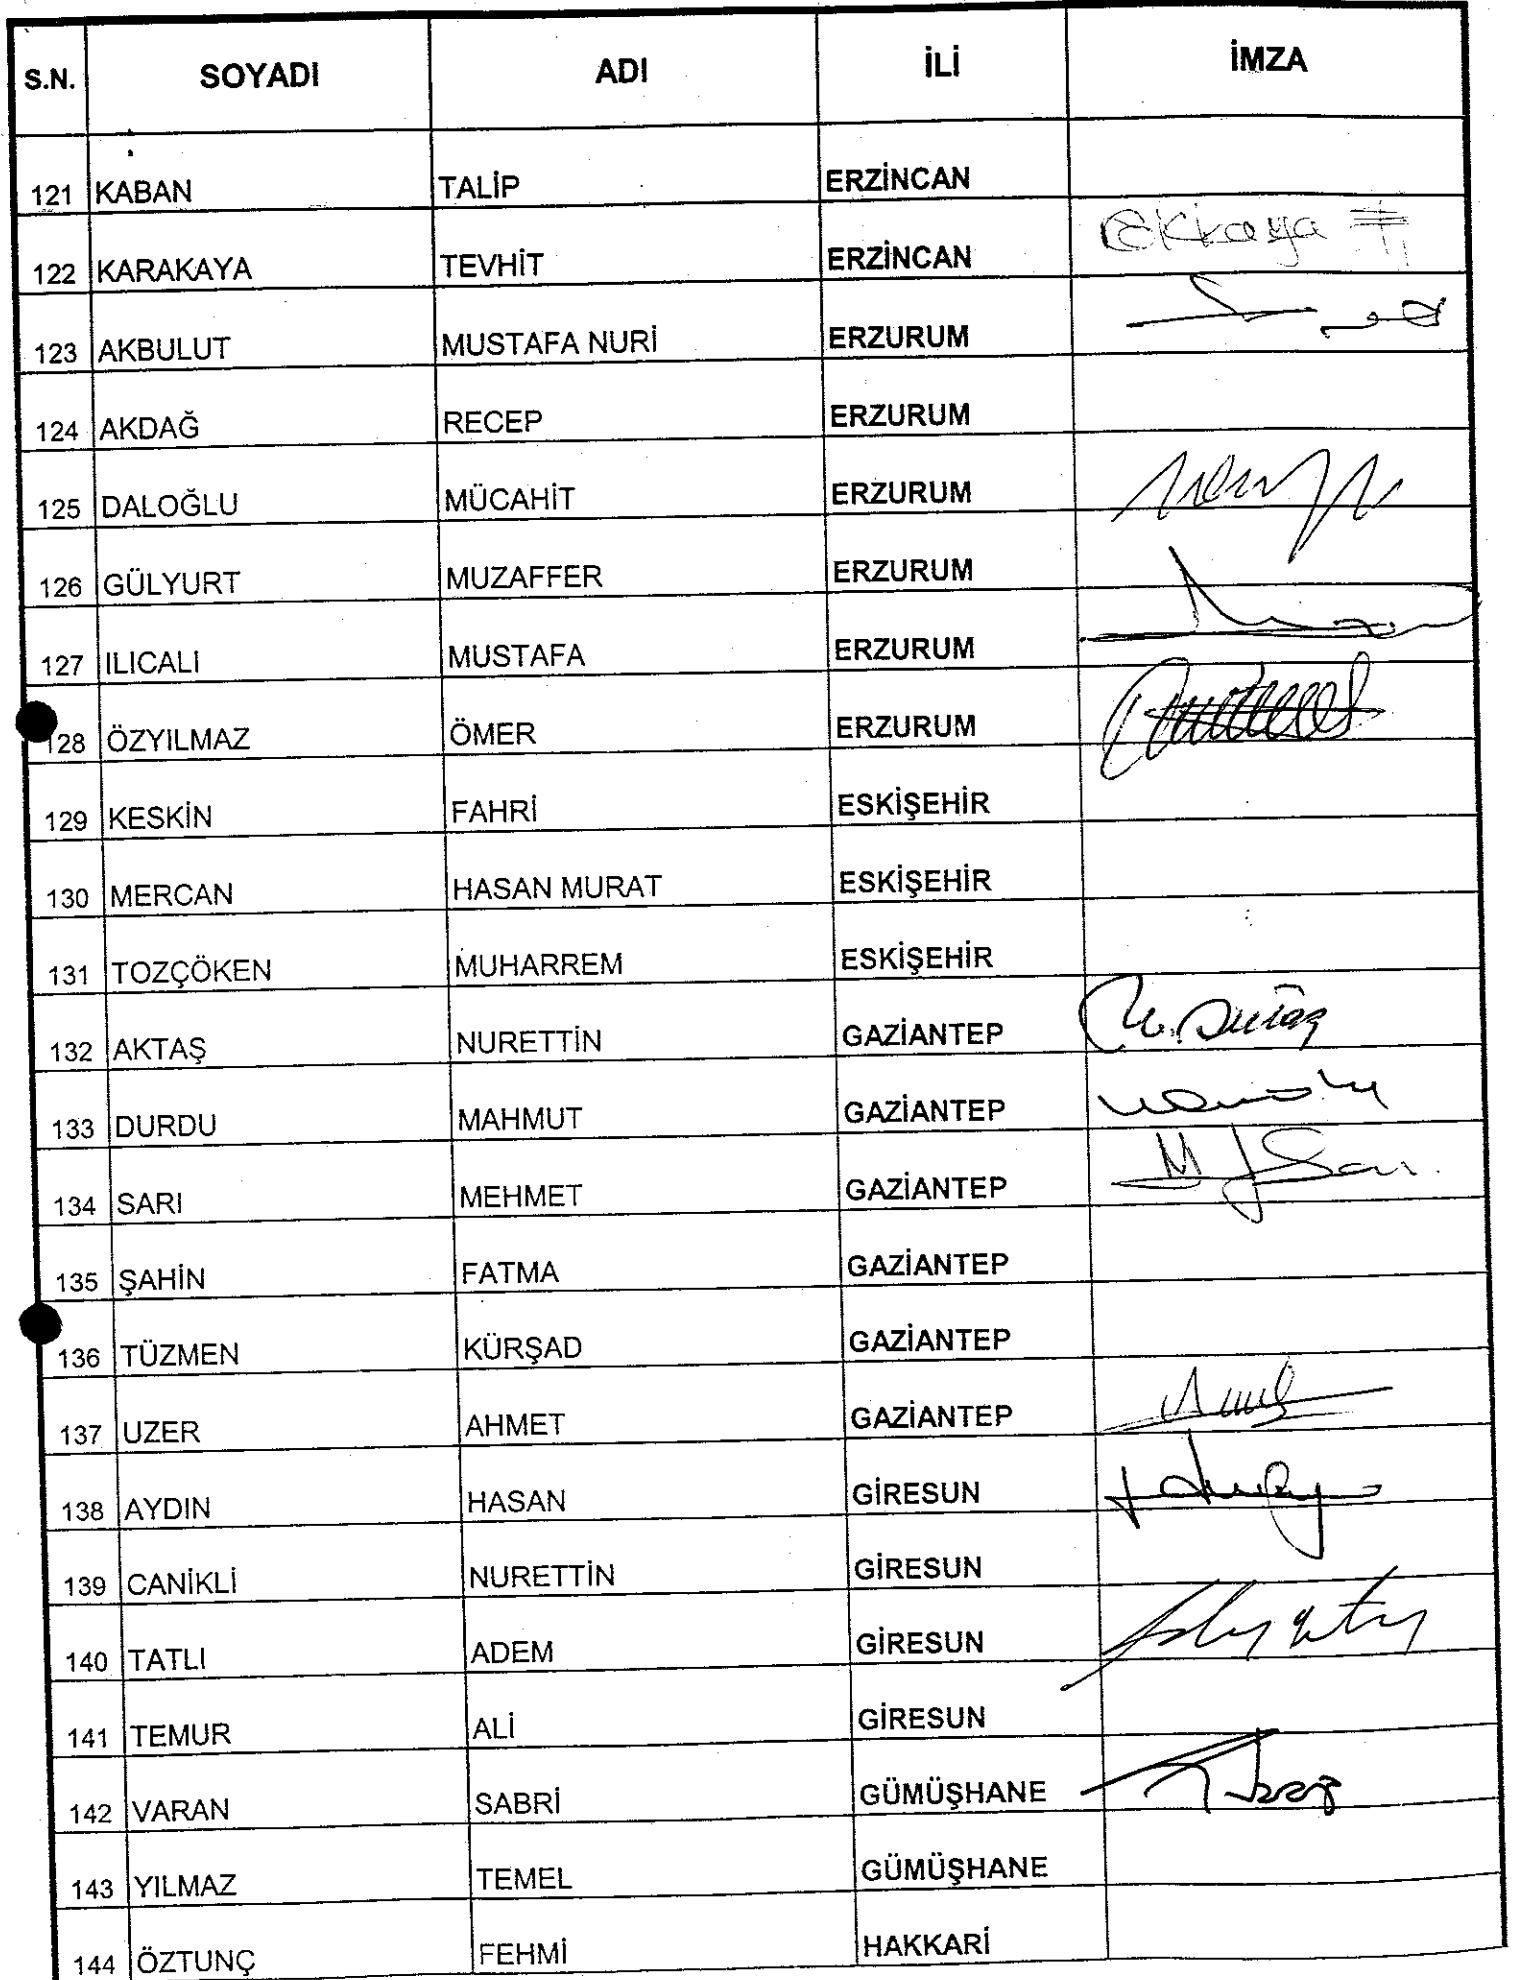 S.N. SOYADI ADI İLİ İMZA
121 KABAN TALİP ERZİNCAN
122 KARAKAYA TEVHİT ERZİNCAN
123 AKBULUT MUSTAFA NURİ ERZURUM
124 AKDAĞ RECEP ERZURUM
125 DALOĞLU MÜCAHİT ERZURUM
126 GÜLYURT MUZAFFER ERZURUM
127 ILICALI MUSTAFA ERZURUM
128 ÖZYILMAZ ÖMER ERZURUM
129 KESKİN FAHRİ ESKİŞEHİR
130 MERCAN HASAN MURAT ESKİŞEHİR
131 TOZÇÖKEN MUHARREM ESKİŞEHİR
132 AKTAŞ NURETTİN GAZİANTEP
133 DURDU MAHMUT GAZİANTEP
134 SARI MEHMET GAZİANTEP
135 ŞAHİN FATMA GAZİANTEP
136 TÜZMEN KÜRŞAD GAZİANTEP
137 UZER AHMET GAZİANTEP
138 AYDIN HASAN GİRESUN
139 CANİKLİ NURETTİN GİRESUN
140 TATLI ADEM GİRESUN
141 TEMUR ALİ GİRESUN
142 VARAN SABRİ GÜMÜŞHANE
143 YILMAZ TEMEL GÜMÜŞHANE
144 ÖZTUNÇ FEHMİ HAKKARİ